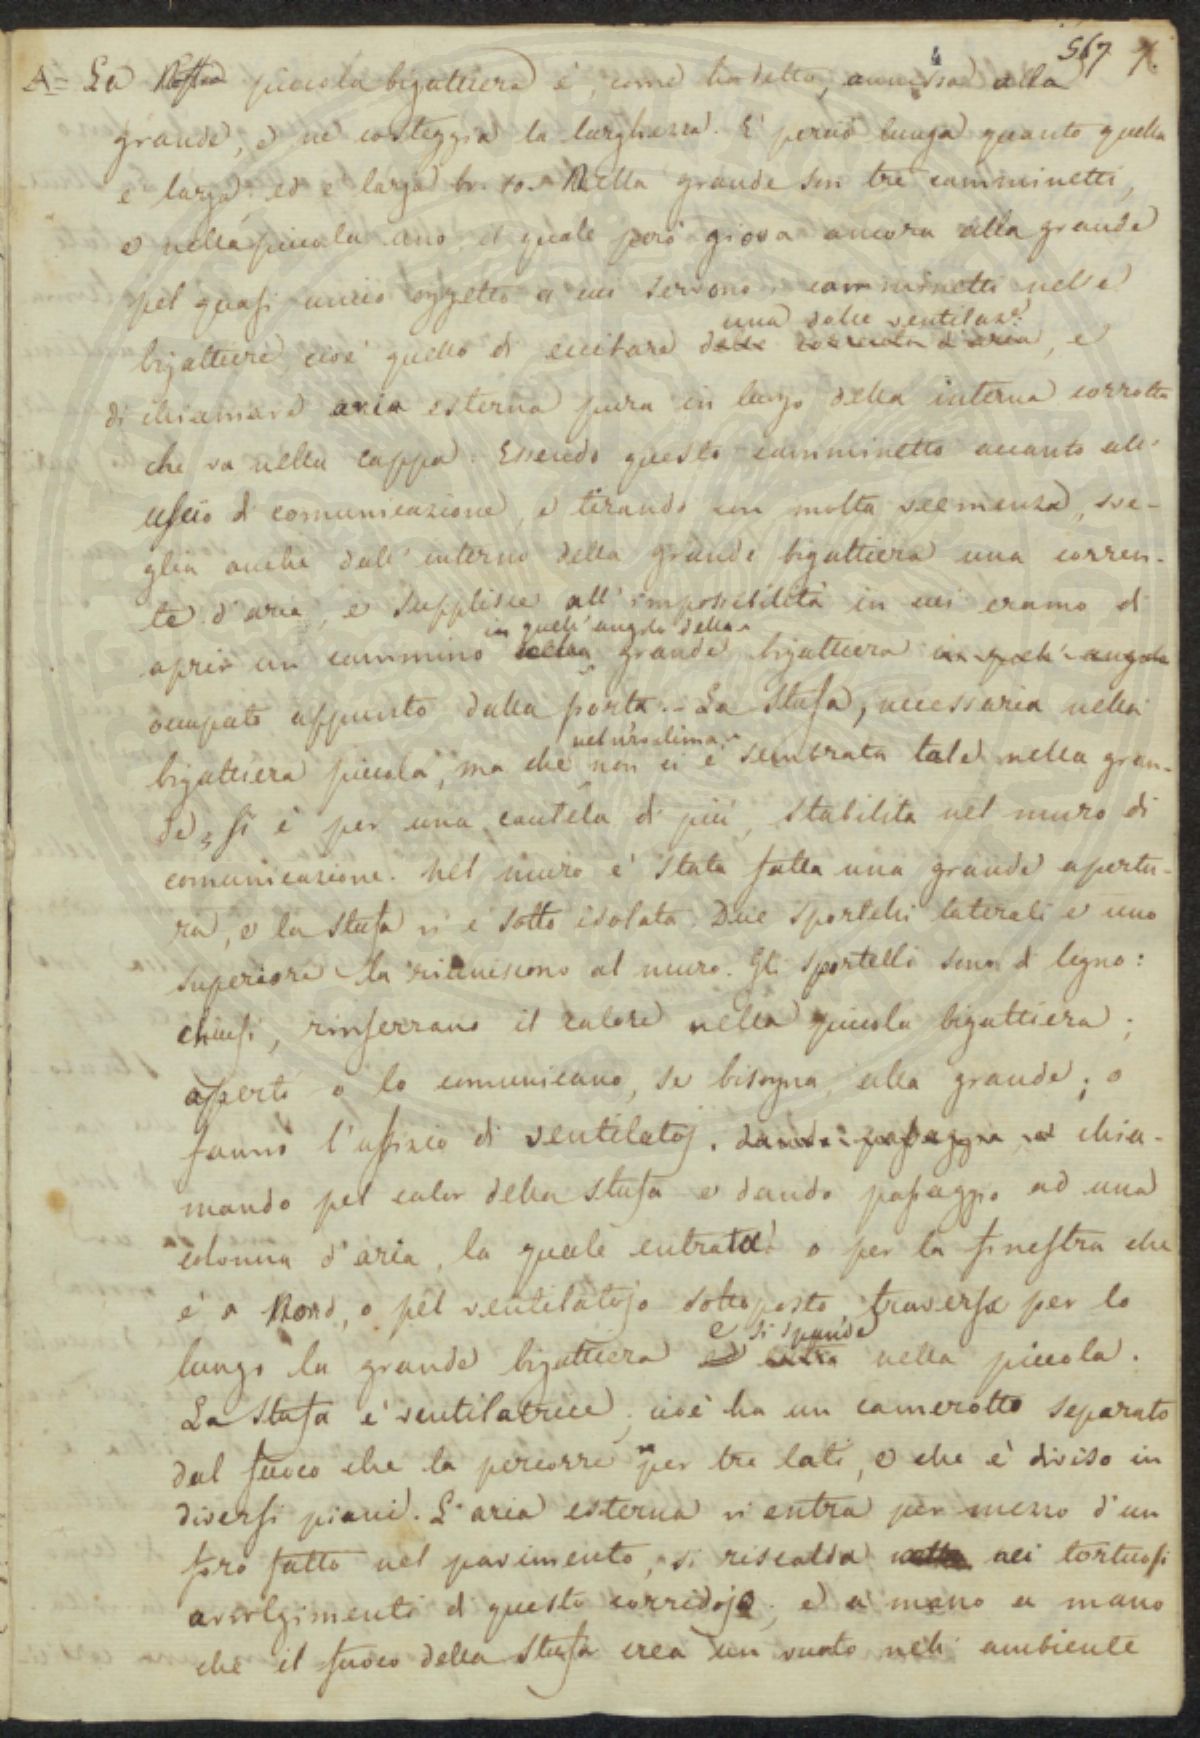 567
A = La Nostra piccola bigattiera è, come ho detto, annessa alla
grande, e ne costeggia la larghezza. E' perciò lunga quanto quella
è larga, ed è larga br. 10. Nella grande son tre camminetti,
e nella piccola uno, il quale però giova ancora alla grande
pel quasi unico oggetto a cui servono i camminetti nelle
una dolce ventilaz.e
bigattiere, cioè quello di eccitare delle correnti d'aria, e
di chiamare aria esterna pura in luogo della interna corrotta
che va nella cappa. Essendo questo camminetto accanto all'
uscio di comunicazione, e tirando con molta veemenza, sve-
glia anche dall'interno della grande bigattiera una corren-
te d'aria, e supplisce all'impossibilità in cui eramo di
in quell'angolo della
aprir un cammino nella grande bigattiera in quell'angolo
occupato appunto dalla porta. - La Stufa, necessaria nella
nel n.ro clima
bigattiera piccola, ma che non ci è sembrata tale nella gran-
de, si è per una cautela di più, stabilita nel muro di
comunicazione. Nel muro è stata fatta una grande apertu-
ra, e la Stufa vi è sotto isolata. Due sportelli laterali e uno
superiore la riuniscono al muro. Gli sportelli sono di legno:
chiusi, rinserrano il calore nella piccola bigattiera;
aperti o lo comunicano, se bisogna, alla grande; o
fanno l'uffizio di ventilatoj, dando passaggio ad chia-
mando pel calor della Stufa e dando passaggio ad una
colonna d'aria, la quale entrata o per la finestra che
è a Nord, o pel ventilatojo sottoposto, traversa per lo
e si spande
lungo la grande bigattiera ed entra nella piccola.
La Stufa è ventilatrice, cioè ha un camerotto separato
dal fuoco che la percorre per tre lati, e che è diviso in
diversi piani. L'aria esterna vi entra per mezzo d'un
foro fatto nel pavimento, si riscalda nella nei tortuosi
avvolgimenti di questo corridojo, e a mano a mano
che il fuoco della Stufa crea un vuoto nell'ambiente